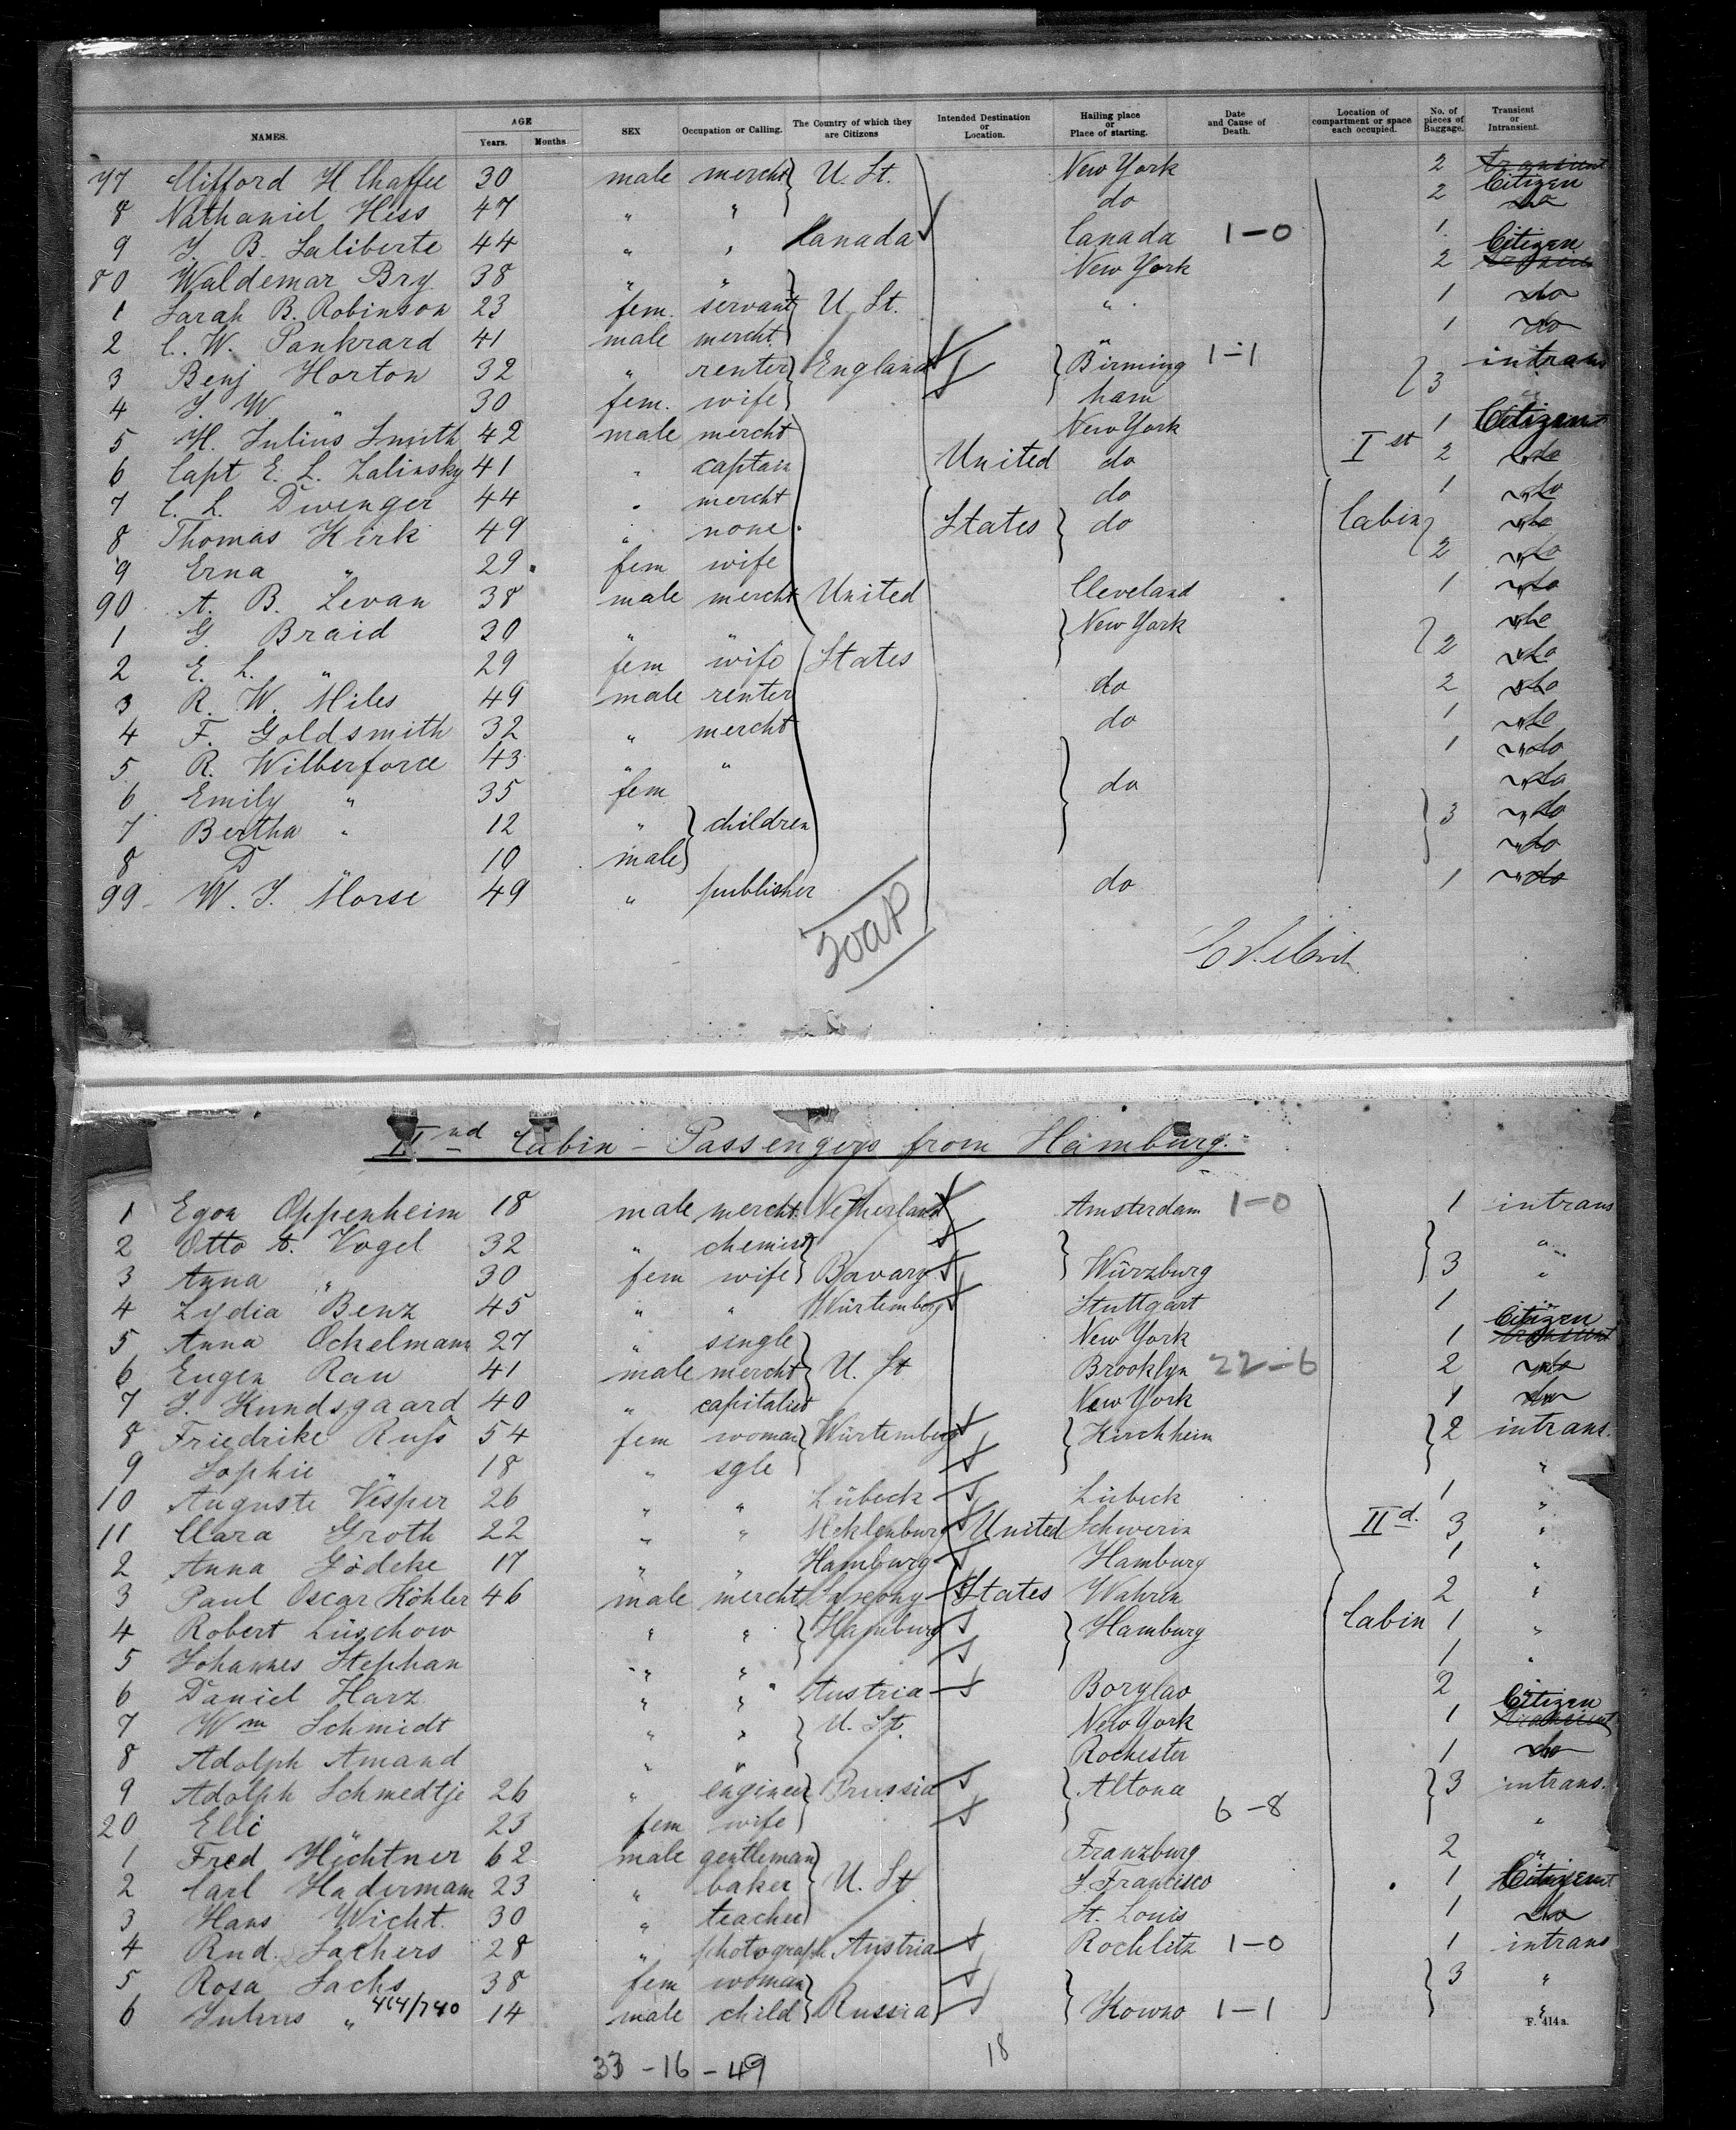 NAMES. AGE Years. Months SEX Occupation or Calling. The Country of which they are Citizens Intended Destination or Location. Hailing place or Place of starting. Date and Cause of Death. Location of compartment or space each occupied. No. of pieces of Baggage. Transient or Intransient.
77 Clifford H Chaffee 30 male mercht U. St. New York 2 transient Citizen
8 Nathaniel Hess 47 " " do 2 do
9 J. B. Laliberte 44 " " Canada Canada 1-0 1
80 Waldemar Bry 38 " " New York 2 Citizen
1 Sarah B. Robinson 23 fem. servant U. St. " 1 do
2 C. W. Pankrard 41 male mercht " 1 do
3 Benj Horton 32 " renter England Birming 1-1 3 intrans
4 J. W. " 30 fem. wife ham "
5 H. Julius Smith 42 male mercht New York 1 Citizen
6 Capt E. L. Zalinsky 41 " captain United do Ist 2 do
7 C. L. Dwenger 44 " mercht do 1 do
8 Thomas Kirk 49 " none States do Cabin do
9 Erna " 29 fem wife 2 do
90 A. B. Levan 38 male mercht United Cleveland 1 do
1 G. Braid 30 " " New York do
2 E. L. " 29 fem wife States 2 do
3 R. W. Miles 49 male renter do 2 do
4 F. Goldsmith 32 " mercht do 1 do
5 R. Wilberforce 43 " " 1 do
6 Emily " 35 fem do do
7 Bertha " 12 " children 3 do
8 D " 10 male do
99 W. J. Morse 49 " publisher do 1 do
IInd Cabin - Passengers from Hamburg.
1 Egon Oppenheim 18 male mercht Netherland Amsterdam 1-0 1 intrans
2 Otto A. Vogel 32 " chemist "
3 Anna " 30 fem wife Bavary Würzburg 3 "
4 Lydia Benz 45 " " Würtemberg Stuttgart 1 "
5 Anna Ockelmann 27 " single New York 1 Citizen transient
6 Eugen Rau 41 male mercht U. St Brooklyn 22-6 2 do
7 J. Kundsgaard 40 " capitalist New York 1 do
8 Friedrike Ruß 54 fem woman Würtemberg Kirchheim 2 intrans.
9 Sophie " 18 " sgle "
10 Auguste Vesper 26 " " Lübeck Lübeck 1 "
11 Clara Groth 22 " " Meklenburg United Schwerin IId. 3 "
2 Anna Gödeke 17 " " Hamburg Hamburg 1 "
3 Paul Oscar Köhler 46 male mercht Saxony States Wahren 2 "
4 Robert Lüschow " " Hamburg Hamburg Cabin 1 "
5 Johannes Stephan " " 1 "
6 Daniel Harz " " Austria Boryslav 2 "
7 Wm Schmidt " " U. St. New York 1 Citizen transient
8 Adolph Amand " " Rochester 1 do
9 Adolph Schmedtje 26 " engineer Prussia Altona 3 intrans.
20 Elli " 23 fem wife 6-8 "
1 Fred Hechtner 62 male gentleman Franzburg 2 "
2 Carl Hadermann 23 " baker U. St S. Francisco 1 Citizen
3 Hans Wicht. 30 " teacher St. Louis 1 do
4 Rud. Sachers 28 " photograph Austria Rochlitz 1-0 1 intrans
5 Rosa Sachs 38 fem woman 3 "
6 Julius " 464/740 14 male child Russia Kowno 1-1 "
F. 414a.
18
33 - 16 - 49